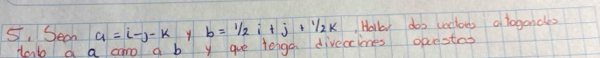 5. Sean a = i-j-k y b = 1/2 i + j + 1/2 k. Hallar dos vectores ortogonales
tanto a a como a b y que tenga direcciones opuestas